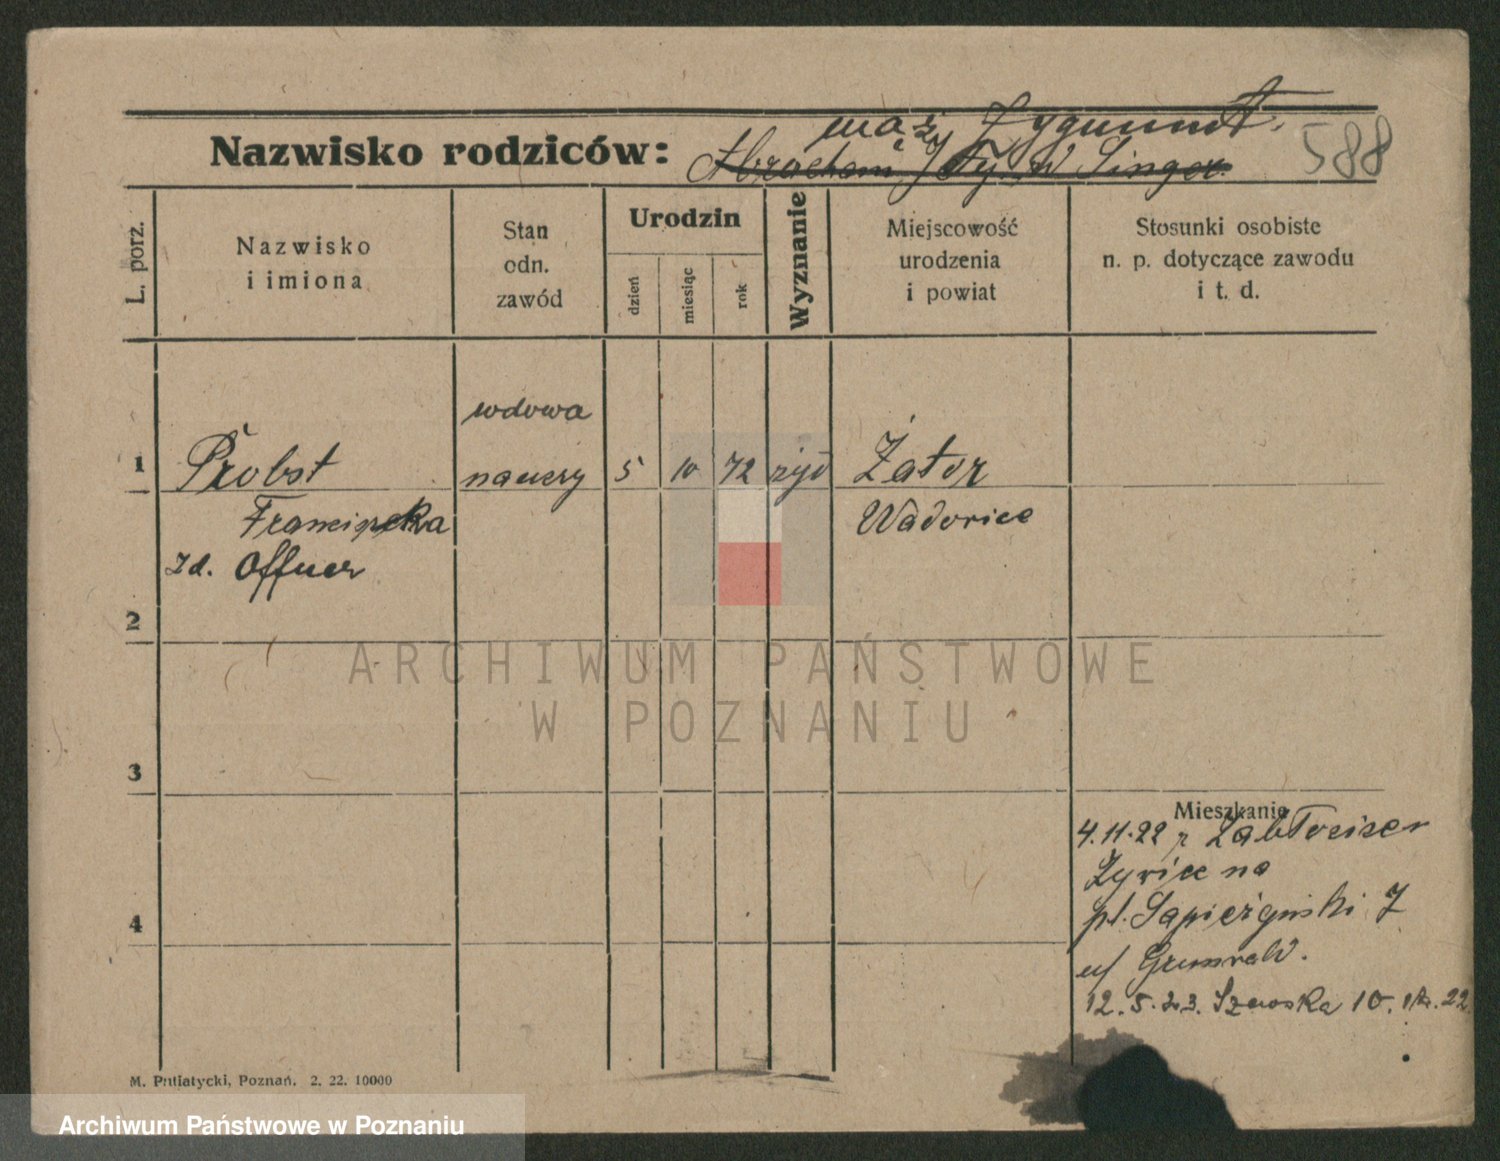 mąż Zygmunt.
Nazwisko rodziców: Abraham J Ty. w Singer 588
L. porz.
Nazwisko
i imiona
Stan
odn.
zawód
Urodzin
dzień
miesiąc
rok
Wyznanie
Miejscowość
urodzenia
i powiat
Stosunki osobiste
n. p. dotyczące zawodu
i t. d.
wdowa
1 Probst nauczy 5 10 72 żyd Zator
Franciszka Wadowice
zd. Offner
2
3
Mieszkanie
4.11.22 z
na
4
pl. Sapieżyński 7
u/ Grunwald.
12.5.23. Szewska 10.
M. Putiatycki, Poznań. 2. 22. 10000
ARCHIWUM PAŃSTWOWE
W POZNANIU
Archiwum Państwowe w Poznaniu